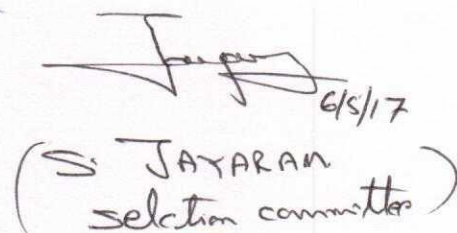 6/5/17
(S. JAYARAM
selction committee)